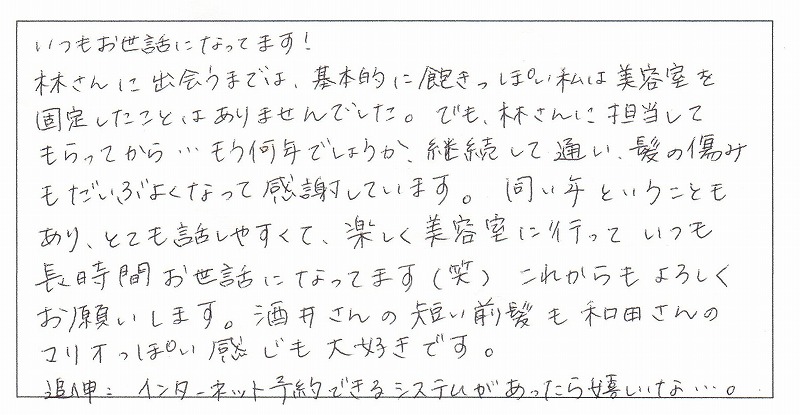 いつもお世話になってます！
林さんに出会うまでは、基本的に飽きっぽい私は美容室を
固定したことはありませんでした。でも、林さんに担当して
もらってから…もう何年でしょうか、継続して通い、髪の傷み
もだいぶよくなって感謝しています。同い年ということも
あり、とても話しやすくて、楽しく美容室に行っていつも
長時間お世話になってます(笑)これからもよろしく
お願いします。酒井さんの短い前髪も和田さんの
マリオっぽい感じも大好きです。
追伸：インターネット予約できるシステムがあったら嬉しいな…。